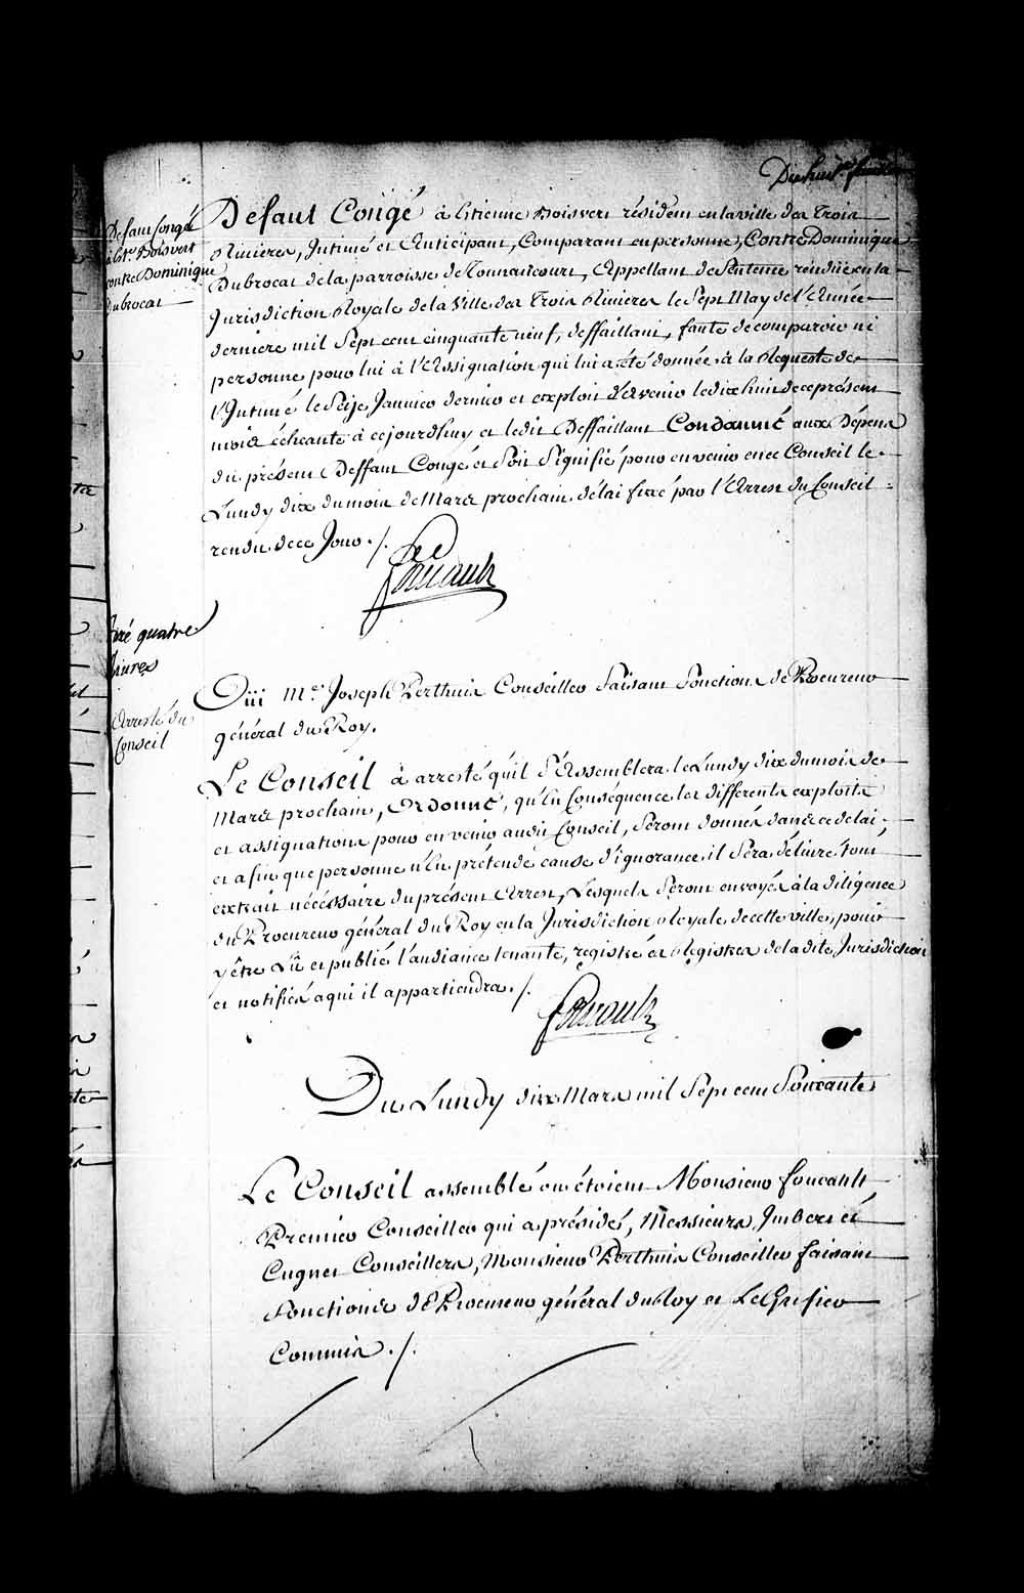 Defaut Congé
à Et.e Boisvert
contre Dominique
Dubrocat
Defaut Congé à Etienne Boisvert résident en la ville des Trois
Rivieres, Intimé et Anticipant, Comparant en personne, Contre Dominique
Dubrocat de la parroisse de Nonnancourt, Appellant de Sentence rendüe en la
Jurisdiction Royale de la Ville des Trois Rivieres le Sept May de l'Année
derniere mil Sept cent cinquante neuf, deffaillant, faute de comparoir ni
personne pour lui à l'Assignation qui lui a été donnée à la Requeste de
l'Intimé le Seize Janvier dernier et exploit d'avenir le dix huit de ce présent
mois échéante à ce jourdhuy et ledit Deffaillant Condamné aux Dépens
du présent Deffaut Congé et Soit Signifié pour en venir en ce Conseil le
Lundy dix du mois de Mars prochain délai fixé par l'Arrest du Conseil
rendu de ce Jour ./.
Foucault
fixé quatre
livres
Arresté du
Conseil
Oüi M.e Joseph Perthuis Conseiller faisant fonctions de Procureur
général du Roy.
Le Conseil à arresté qu'il s'Assemblera le Lundy dix du mois de
Mars prochain, Ordonne, qu'en Conséquence les differents exploits
et assignations pour en venir audit Conseil, seront donnés dans ce delai
et afin que personne n'en prétende cause d'ignorance il sera délivré tout
extrait nécéssaire du présent Arrest, Lesquels seront envoyés à la diligence
du Procureur général du Roy en la Jurisdiction Royale de cette ville, pour
y être Lû et publié l'audiance tenante, registré és Registres de la dite Jurisdiction
et notifiés a qui il appartiendra ./.
Foucault
Du Lundy dix Mars mil Sept cent Soixante
Le Conseil assemblé ou étoient Monsieur foucault
Premier Conseiller qui a présidé, Messieurs Imbert et
Cugnet Conseillers, Monsieur Perthuis Conseiller faisant
fonctions de Procureur général du Roy et Le Greffier
Commis ./.